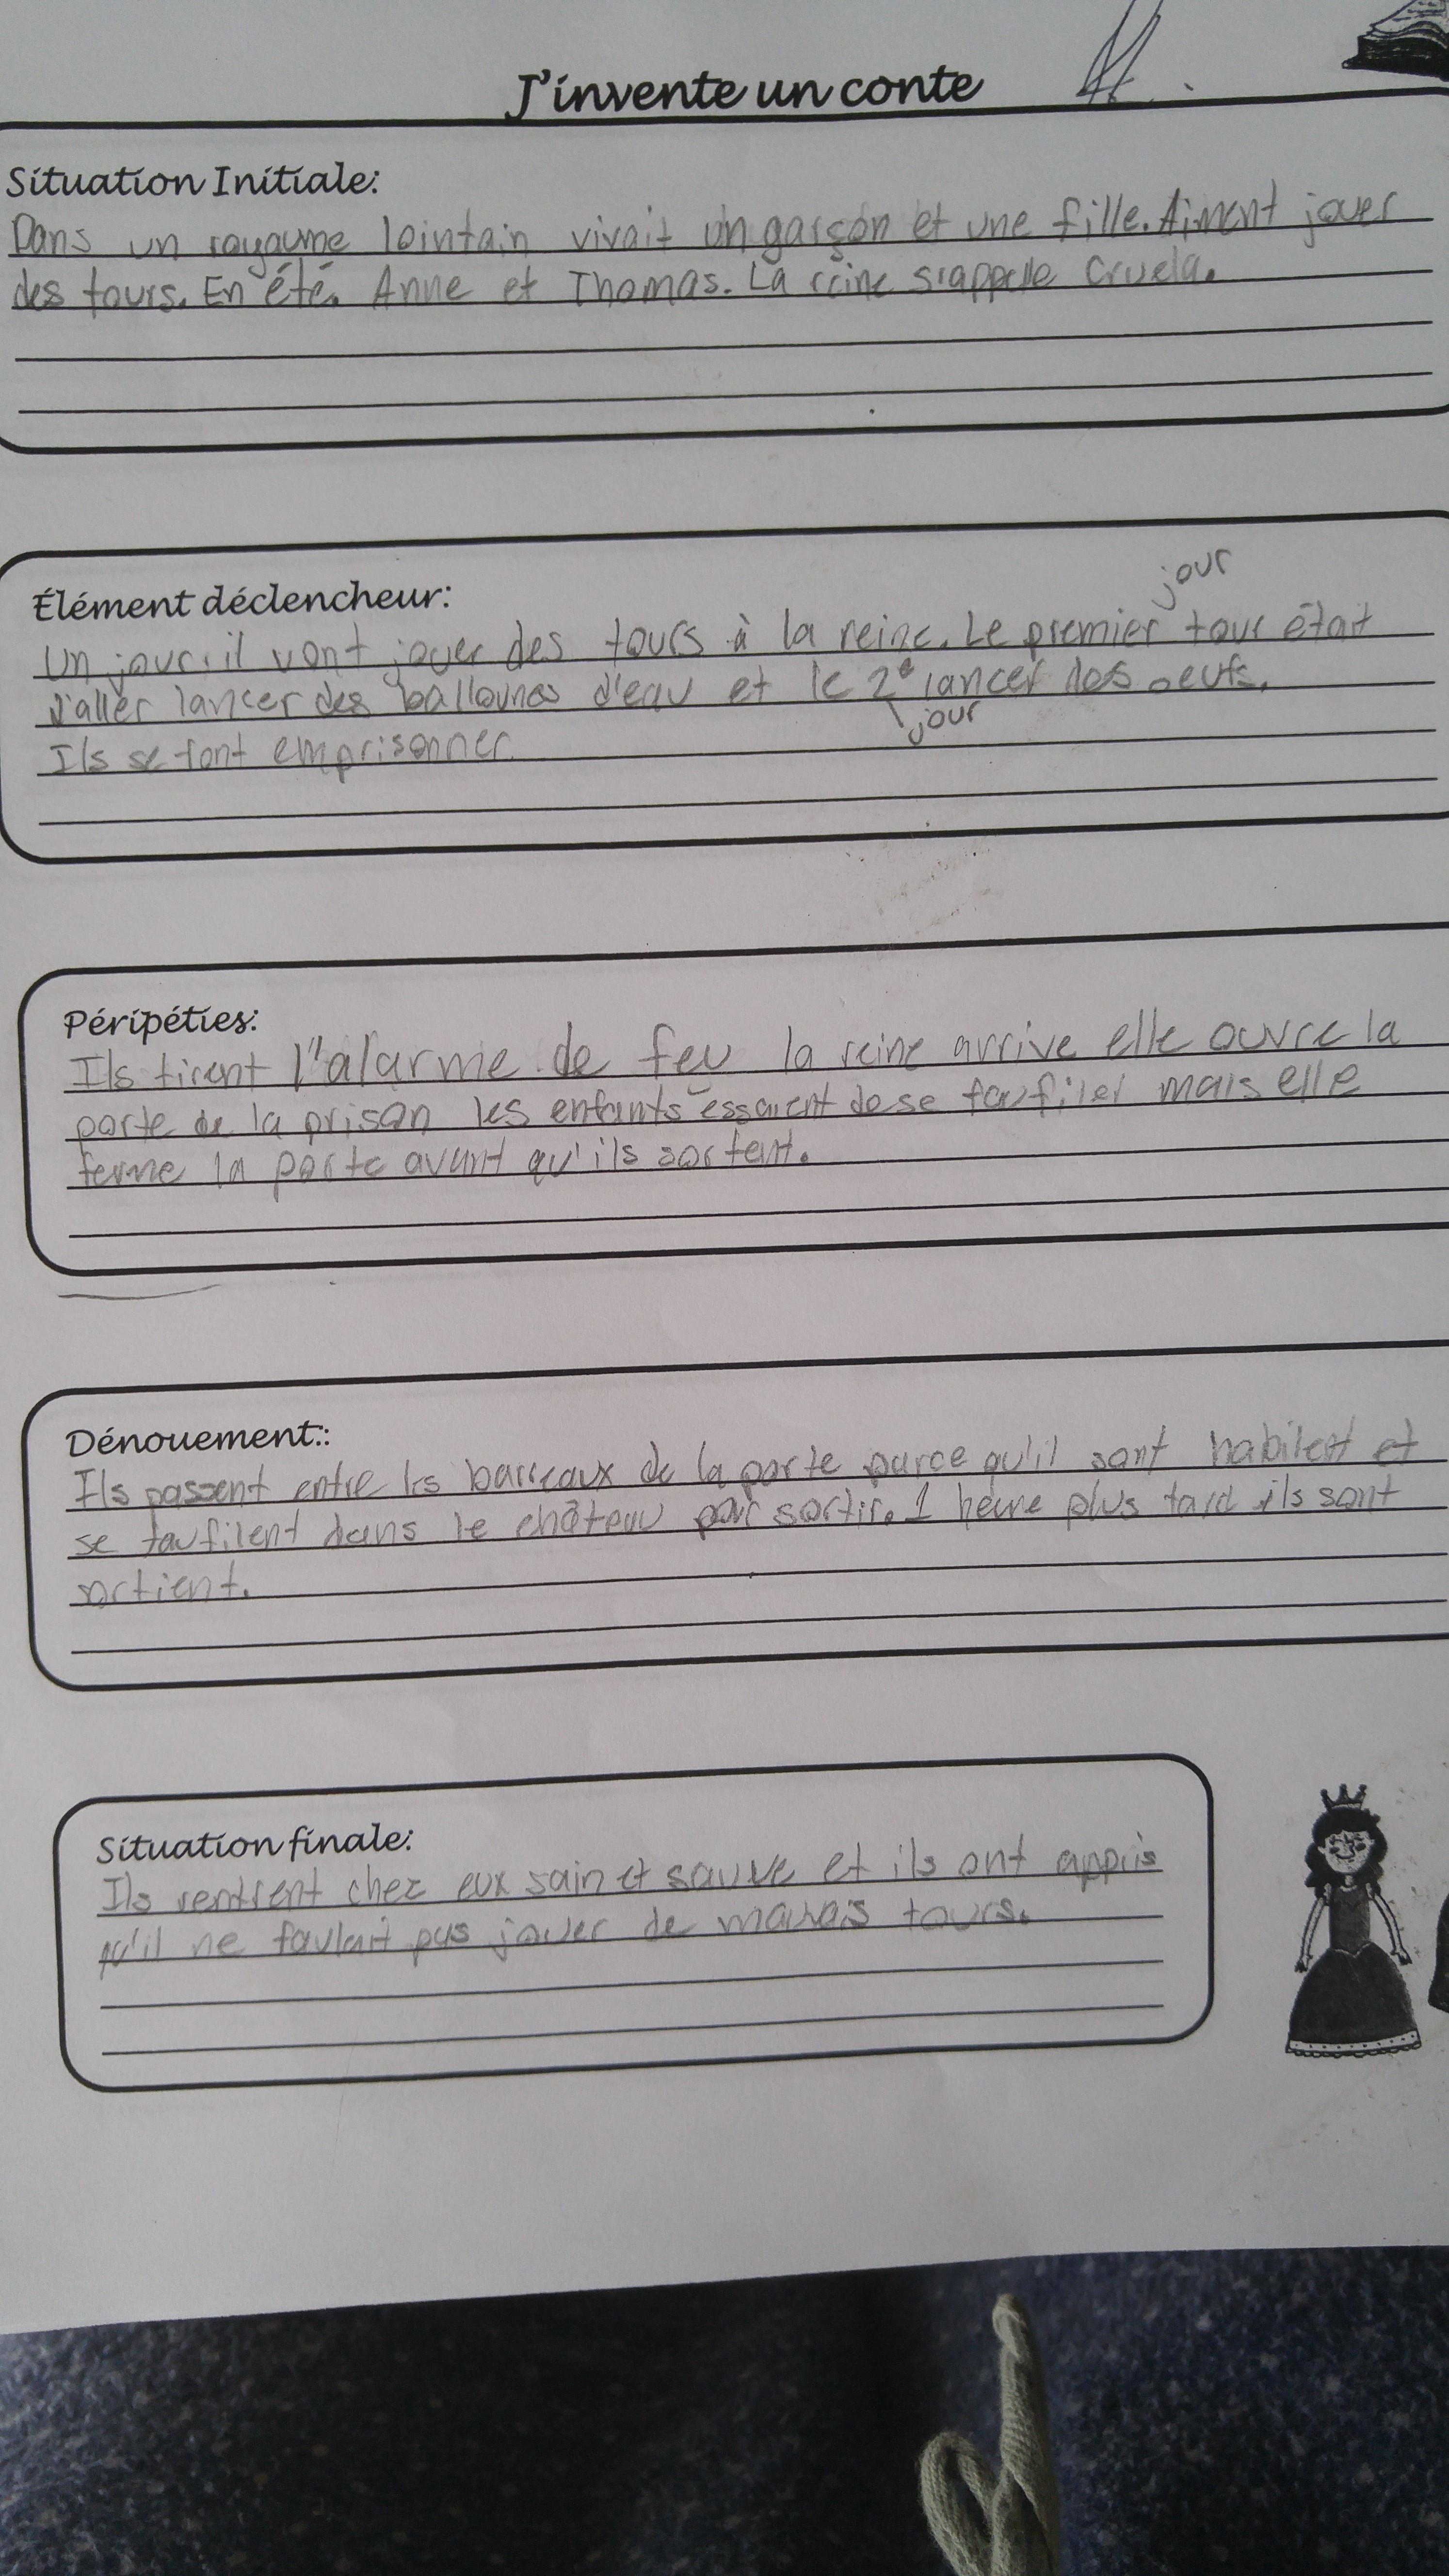 J'invente un conte
Situation Initiale:
Dans un royaume lointain vivait un garçon et une fille. Aiment jouer
des tours. En été. Anne et Thomas. La reine s'appelle Cruela.
Élément déclencheur:
jour
Un jour, il vont jouer des tours à la reine. Le premier tour était
d'aller lancer des ballounes d'eau et le 2e lancer des oeufs.
jour
Ils se font emprisonner.
Péripéties:
Ils tirent l'alarme de feu la reine arrive elle ouvre la
porte de la prison les enfants essaient de se faufiler mais elle
ferme la porte avant qu'ils sortent.
Dénouement::
Ils passent entre les barreaux de la porte parce qu'il sont habilent et
se faufilent dans le château pour sortir. 1 heure plus tard ils sont
sortient.
Situation finale:
Ils rentrent chez eux sain et sauve et ils ont appris
qu'il ne faulait pas jouer de mauvais tours.